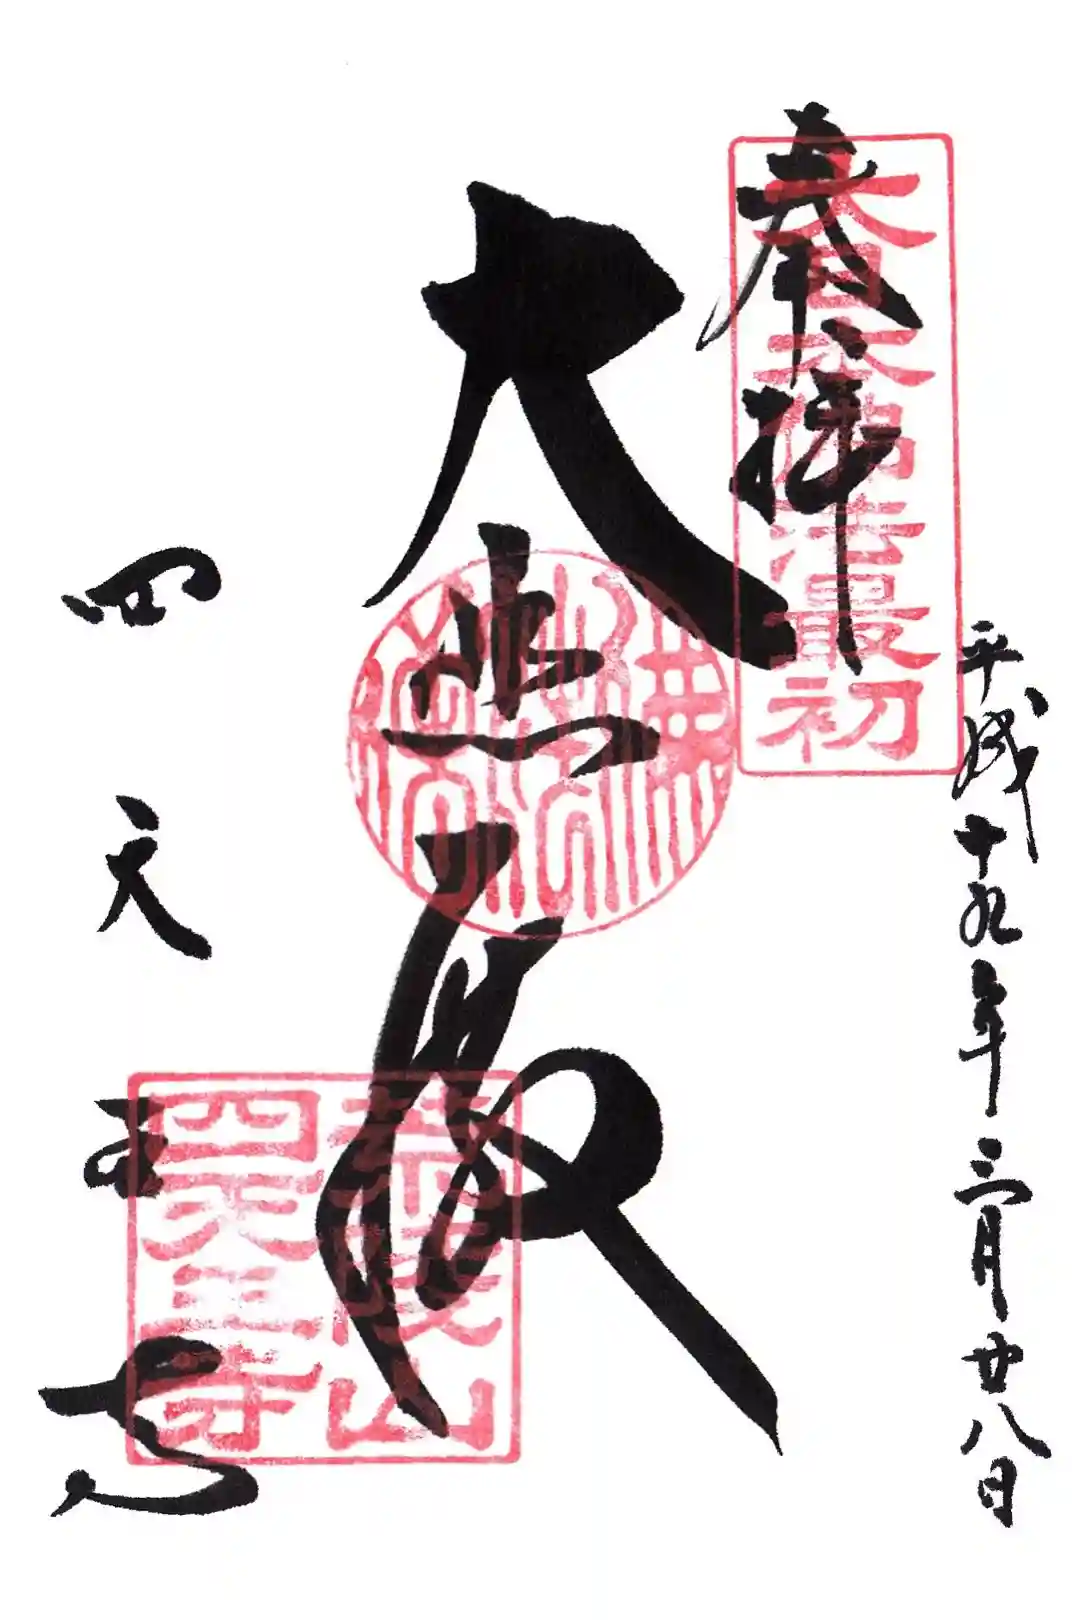 平成十九年三月廿八日
奉拝
大日本佛法最初
大悲殿
荒陵山
四天王寺
四天王寺